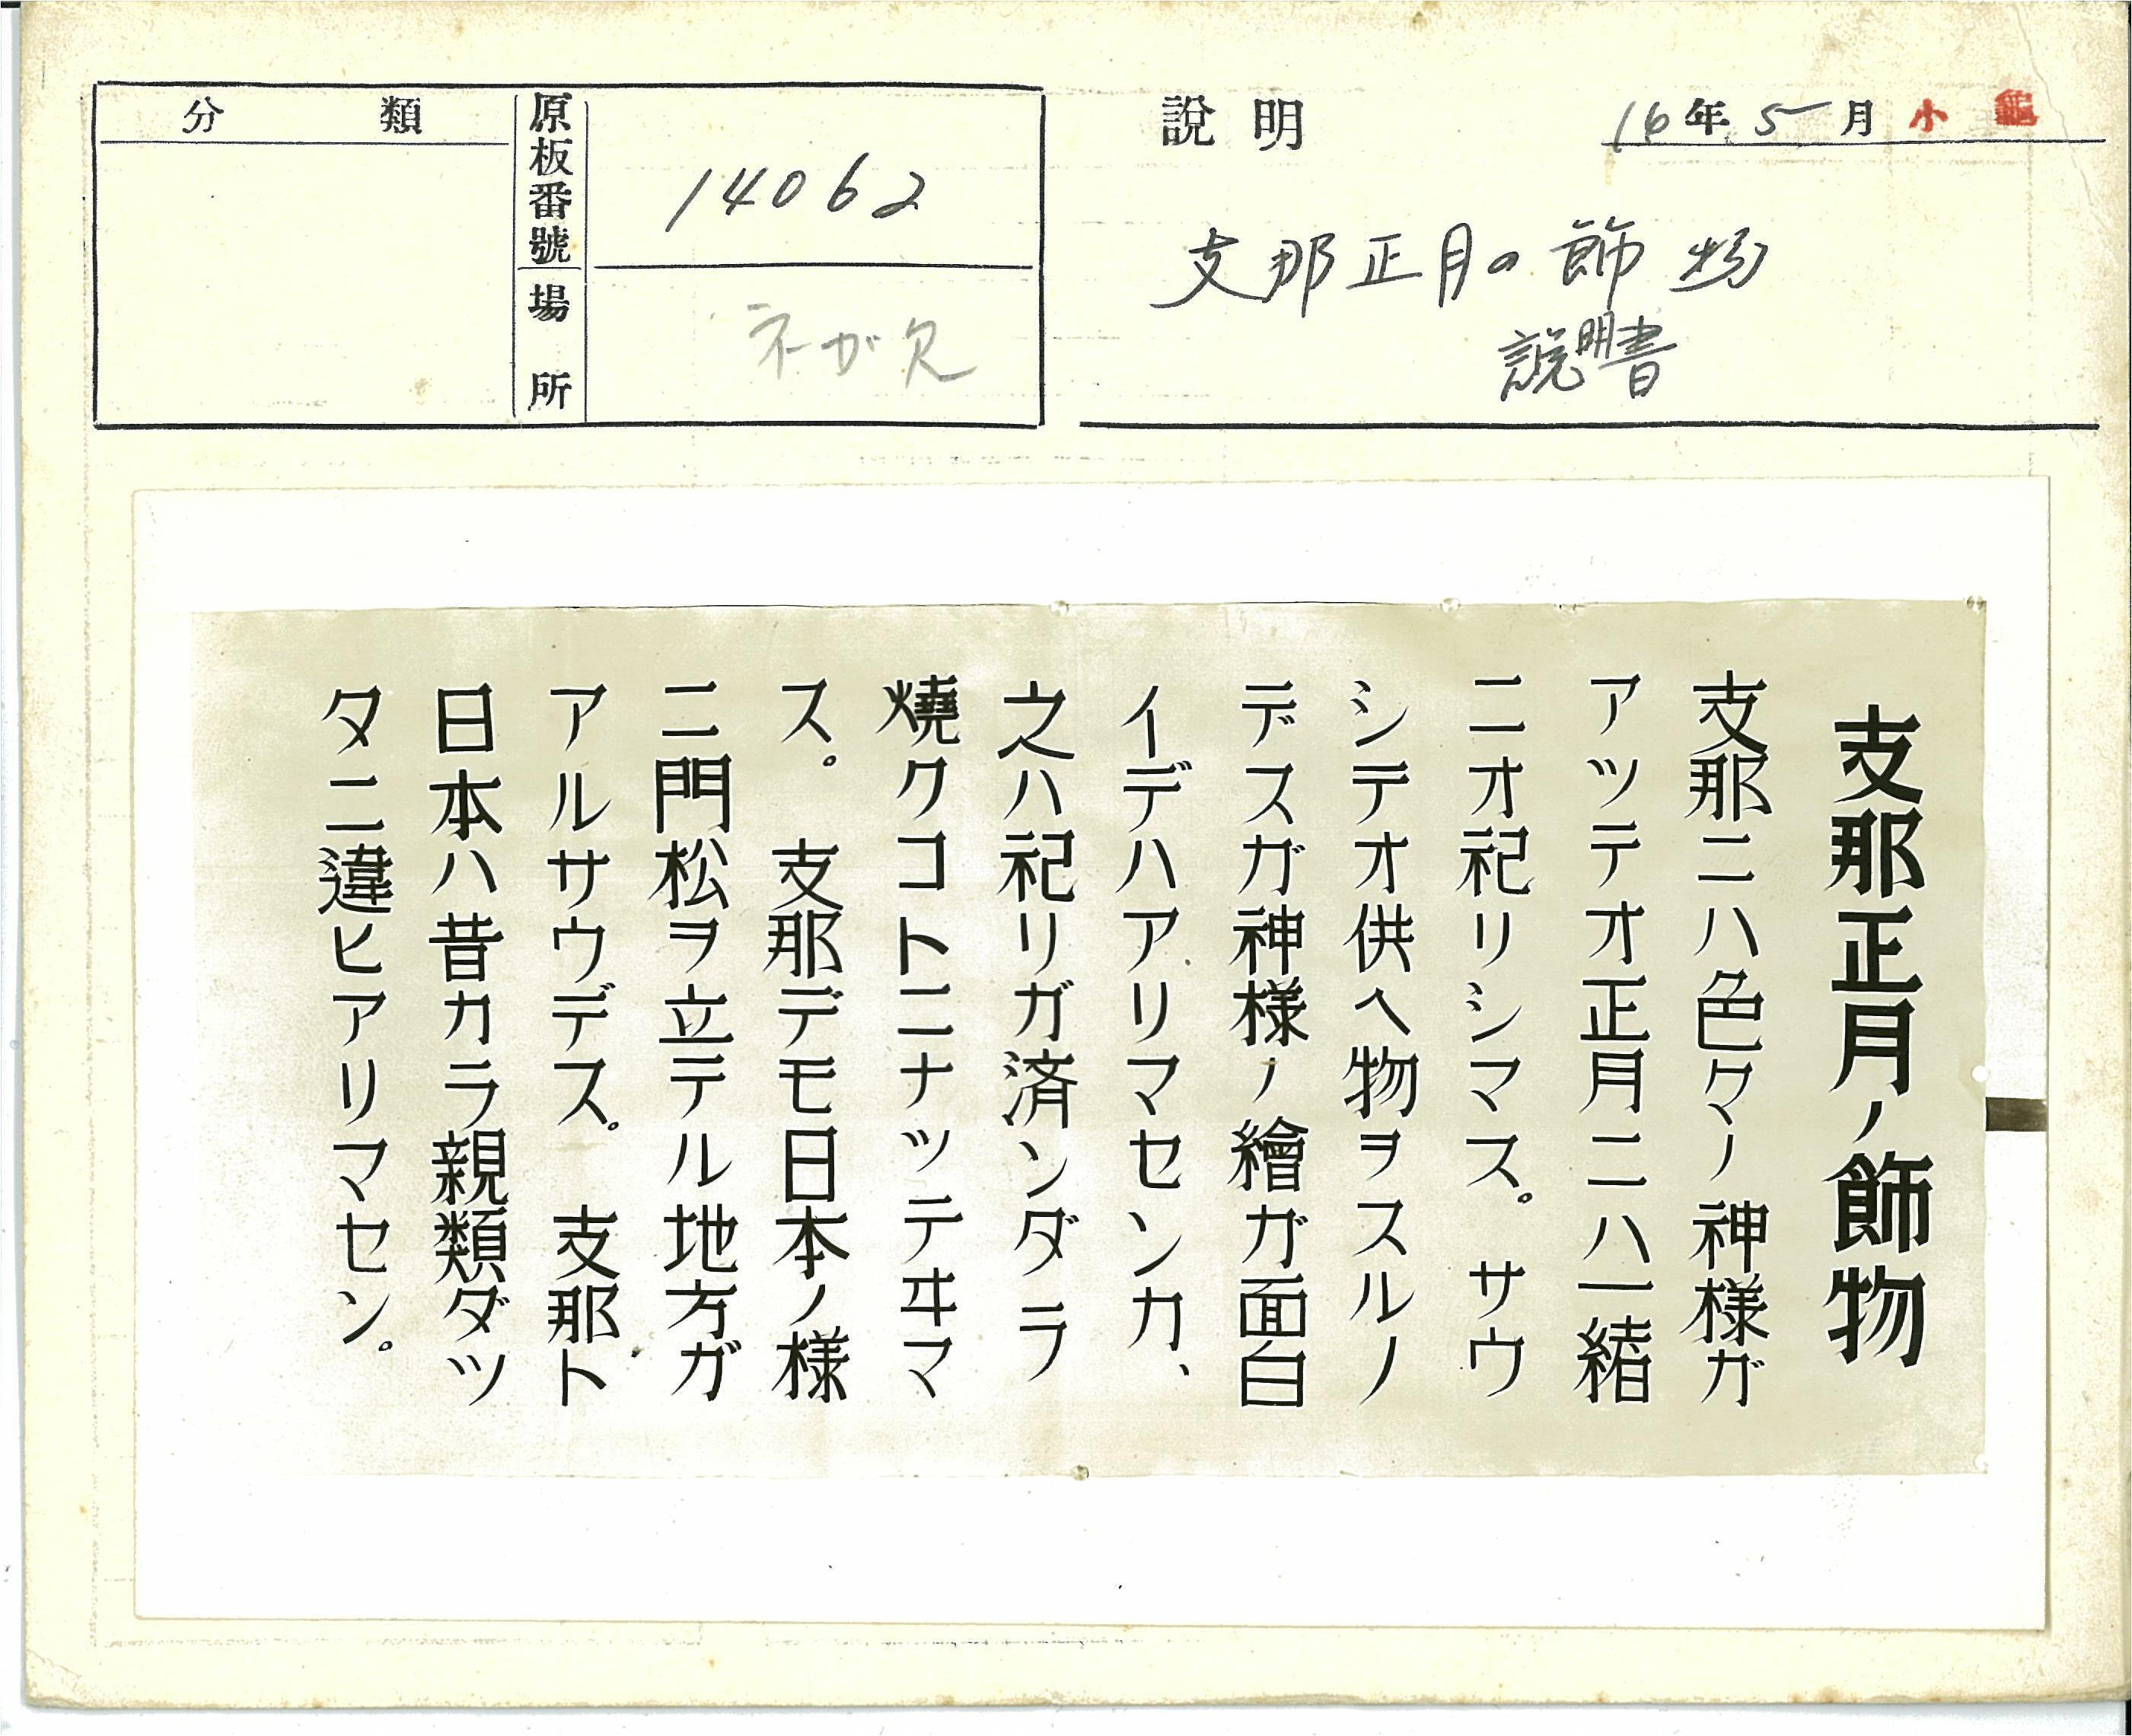 分類
原板番號
14062
場所
ネガ欠
説明
16年5月 小龜
支那正月の飾物
説明書
支那正月ノ飾物
支那ニハ色々ノ神様ガ
アッテオ正月ニハ一緒
ニオ祀リシマス。サウ
シテオ供ヘ物ヲスルノ
デスガ神様ノ繪ガ面白
イデハアリマセンカ、
之ハ祀リガ済ンダラ
燒クコトニナッテヰマ
ス。支那デモ日本ノ様
ニ門松ヲ立テル地方ガ
アルサウデス。支那ト
日本ハ昔カラ親類ダッ
タニ違ヒアリマセン。